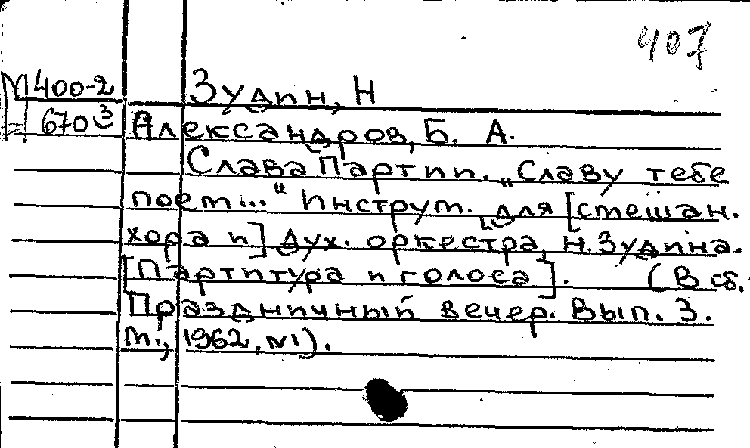 407
М400-2 Зудин, Н
670 3 Александров, Б. А.
Слава Партии. „Славу тебе
поем..." Инструм. для [смешан.
хора и] дух. оркестра Н. Зудина.
[Партитура и голоса]. (В сб.
Праздничный вечер. Вып. 3.
М., 1962, №1).